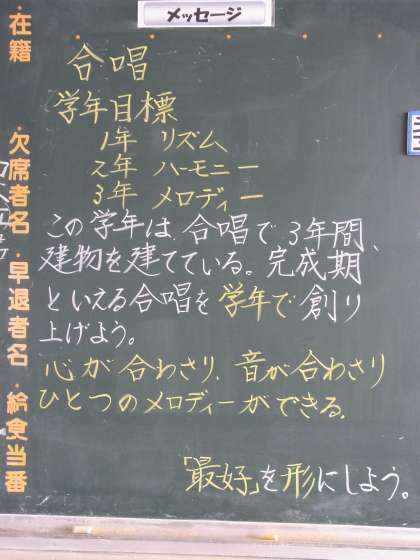 メッセージ
・在籍
・欠席者名
・早退者名
・給食当番
合唱
学年目標
1年 リズム
2年 ハーモニー
3年 メロディー
この学年は、合唱で3年間、
建物を建てている。完成期
といえる合唱を学年で創り
上げよう。
心が合わさり、音が合わさり
ひとつのメロディーができる。
「最好」を形にしよう。